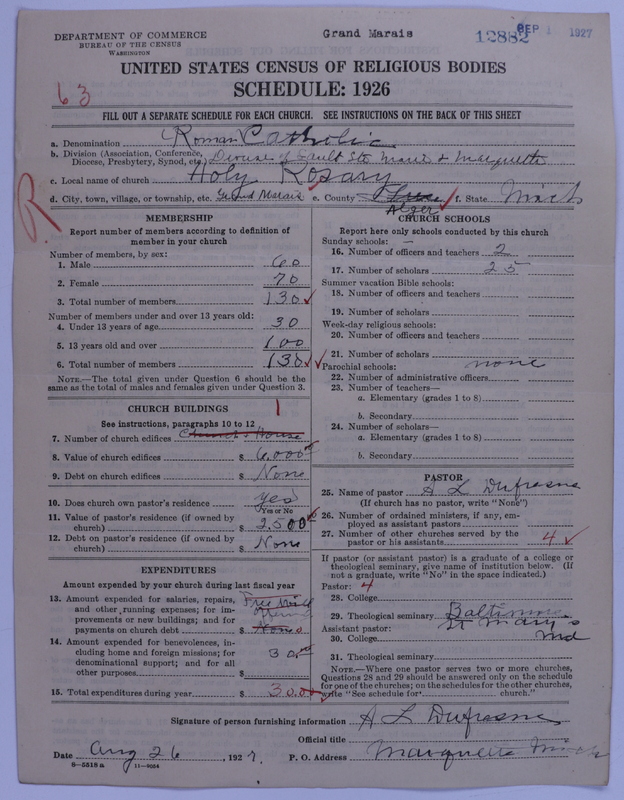 Grand Marais
12882 SEP 1 1927
DEPARTMENT OF COMMERCE
BUREAU OF THE CENSUS
WASHINGTON
UNITED STATES CENSUS OF RELIGIOUS BODIES
SCHEDULE: 1926
63
FILL OUT A SEPARATE SCHEDULE FOR EACH CHURCH. SEE INSTRUCTIONS ON THE BACK OF THIS SHEET
a. Denomination Roman Catholic
b. Division (Association, Conference, Diocese of Sault Ste Marie & Marquette
Diocese, Presbytery, Synod, etc.)
c. Local name of church Holy Rosary
d. City, town, village, or township, etc. Grand Marais e. County Alger f. State Mich
R
MEMBERSHIP
Report number of members according to definition of
member in your church
Number of members, by sex:
1. Male 60
2. Female 70
3. Total number of members 130
Number of members under and over 13 years old:
4. Under 13 years of age 30
5. 13 years old and over 100
6. Total number of members 130
NOTE.—The total given under Question 6 should be
same as the total of males and females given under Question 3.
CHURCH BUILDINGS
1
See instructions, paragraphs 10 to 12
7. Number of church edifices Church & House
8. Value of church edifices $ 6,000 00
9. Debt on church edifices $ None
10. Does church own pastor's residence Yes
Yes or No
11. Value of pastor's residence (if owned by
church) $ 2,500
12. Debt on pastor's residence (if owned by
church) $ None
EXPENDITURES
Amount expended by your church during last fiscal year
13. Amount expended for salaries, repairs,
and other running expenses; for im-
provements or new buildings; and for
payments on church debt $ None
14. Amount expended for benevolences, in-
cluding home and foreign missions; for
denominational support; and for all
other purposes $ 30 00
15. Total expenditures during year $
CHURCH SCHOOLS
Report here only schools conducted by this church
Sunday schools: —
16. Number of officers and teachers 2
17. Number of scholars 25
Summer vacation Bible schools:
18. Number of officers and teachers
19. Number of scholars
Week-day religious schools:
20. Number of officers and teachers
21. Number of scholars
Parochial schools: none
22. Number of administrative officers
23. Number of teachers—
a. Elementary (grades 1 to 8)
b. Secondary
24. Number of scholars—
a. Elementary (grades 1 to 8)
b. Secondary
PASTOR
25. Name of pastor A L Dufresne
(If church has no pastor, write "None")
26. Number of ordained ministers, if any, em-
ployed as assistant pastors
27. Number of other churches served by the
pastor or his assistants 4
If pastor (or assistant pastor) is a graduate of a college or
theological seminary, give name of institution below. (If
not a graduate, write "No" in the space indicated.)
Pastor: 4
28. College
29. Theological seminary Baltimore
Assistant pastor: St Mary's
30. College Md
31. Theological seminary
NOTE.—Where one pastor serves two or more churches,
Questions 28 and 29 should be answered only on the schedule
for one of the churches; on the schedules for the other churches,
write "See schedule for church."
Signature of person furnishing information A L Dufresne
Official title
Date Aug 26, 1927. P. O. Address Marquette Mich
8—5518 a 11—9054